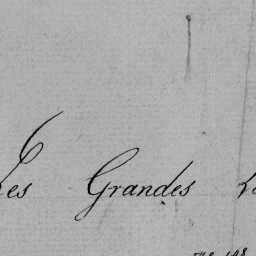 Les Grandes